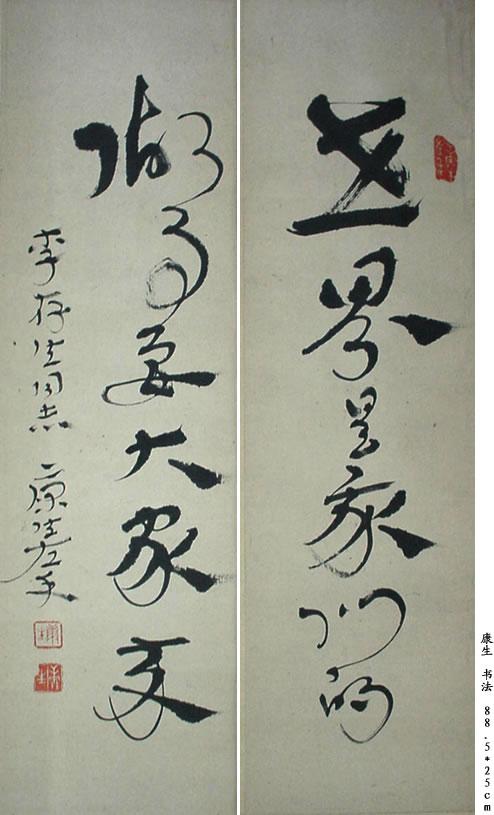 世界是我们的
做事要大家来
同志 康生左手
康生 书法 88.5*25cm